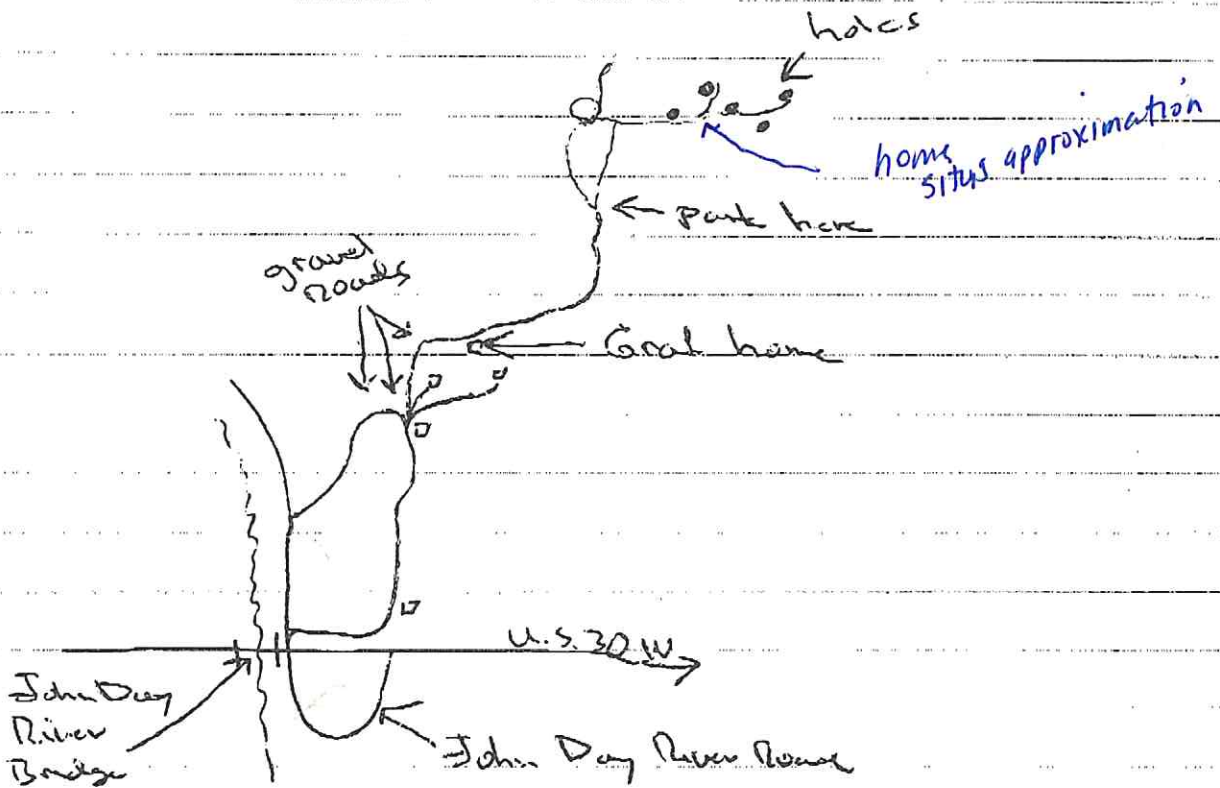 holes
home
situs approximation
park here
gravel
Roads
Graf home
U.S. 30 W
John Day
River
Bridge
John Day River Road